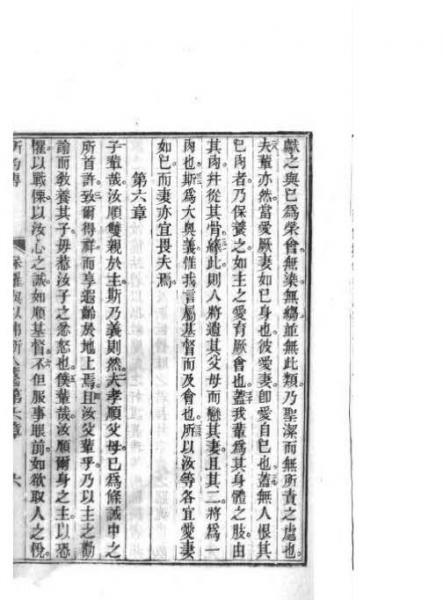 獻之與已爲榮會無染無縐並無此類乃聖潔而無所責之處也
夫輩亦然當愛厥妻如已身也彼愛妻卽愛自已也蓋無人恨其
已肉者乃保養之如主之愛育厥會也蓋我輩爲其身體之肢由
其肉幷從其骨緣此則人將遺其父母而戀其妻且其二將爲一
肉也斯爲大奧義惟我言屬基督而及會也所以汝等各宜愛妻
如已而妻亦宜畏夫焉
第六章
子輩哉汝順雙親於主斯乃義則然夫孝順父母已爲條誡中之
所首許致爾得祥而享遐齡於地上焉且汝父輩乎乃以主之勸
諭而教養其子毋惹汝子之忿怒也僕輩哉汝順爾身之主以恐
懼以戰慄以汝心之誠如順基督不但服事眼前如欲取人之悅
保羅與以弗所人書第六章 六